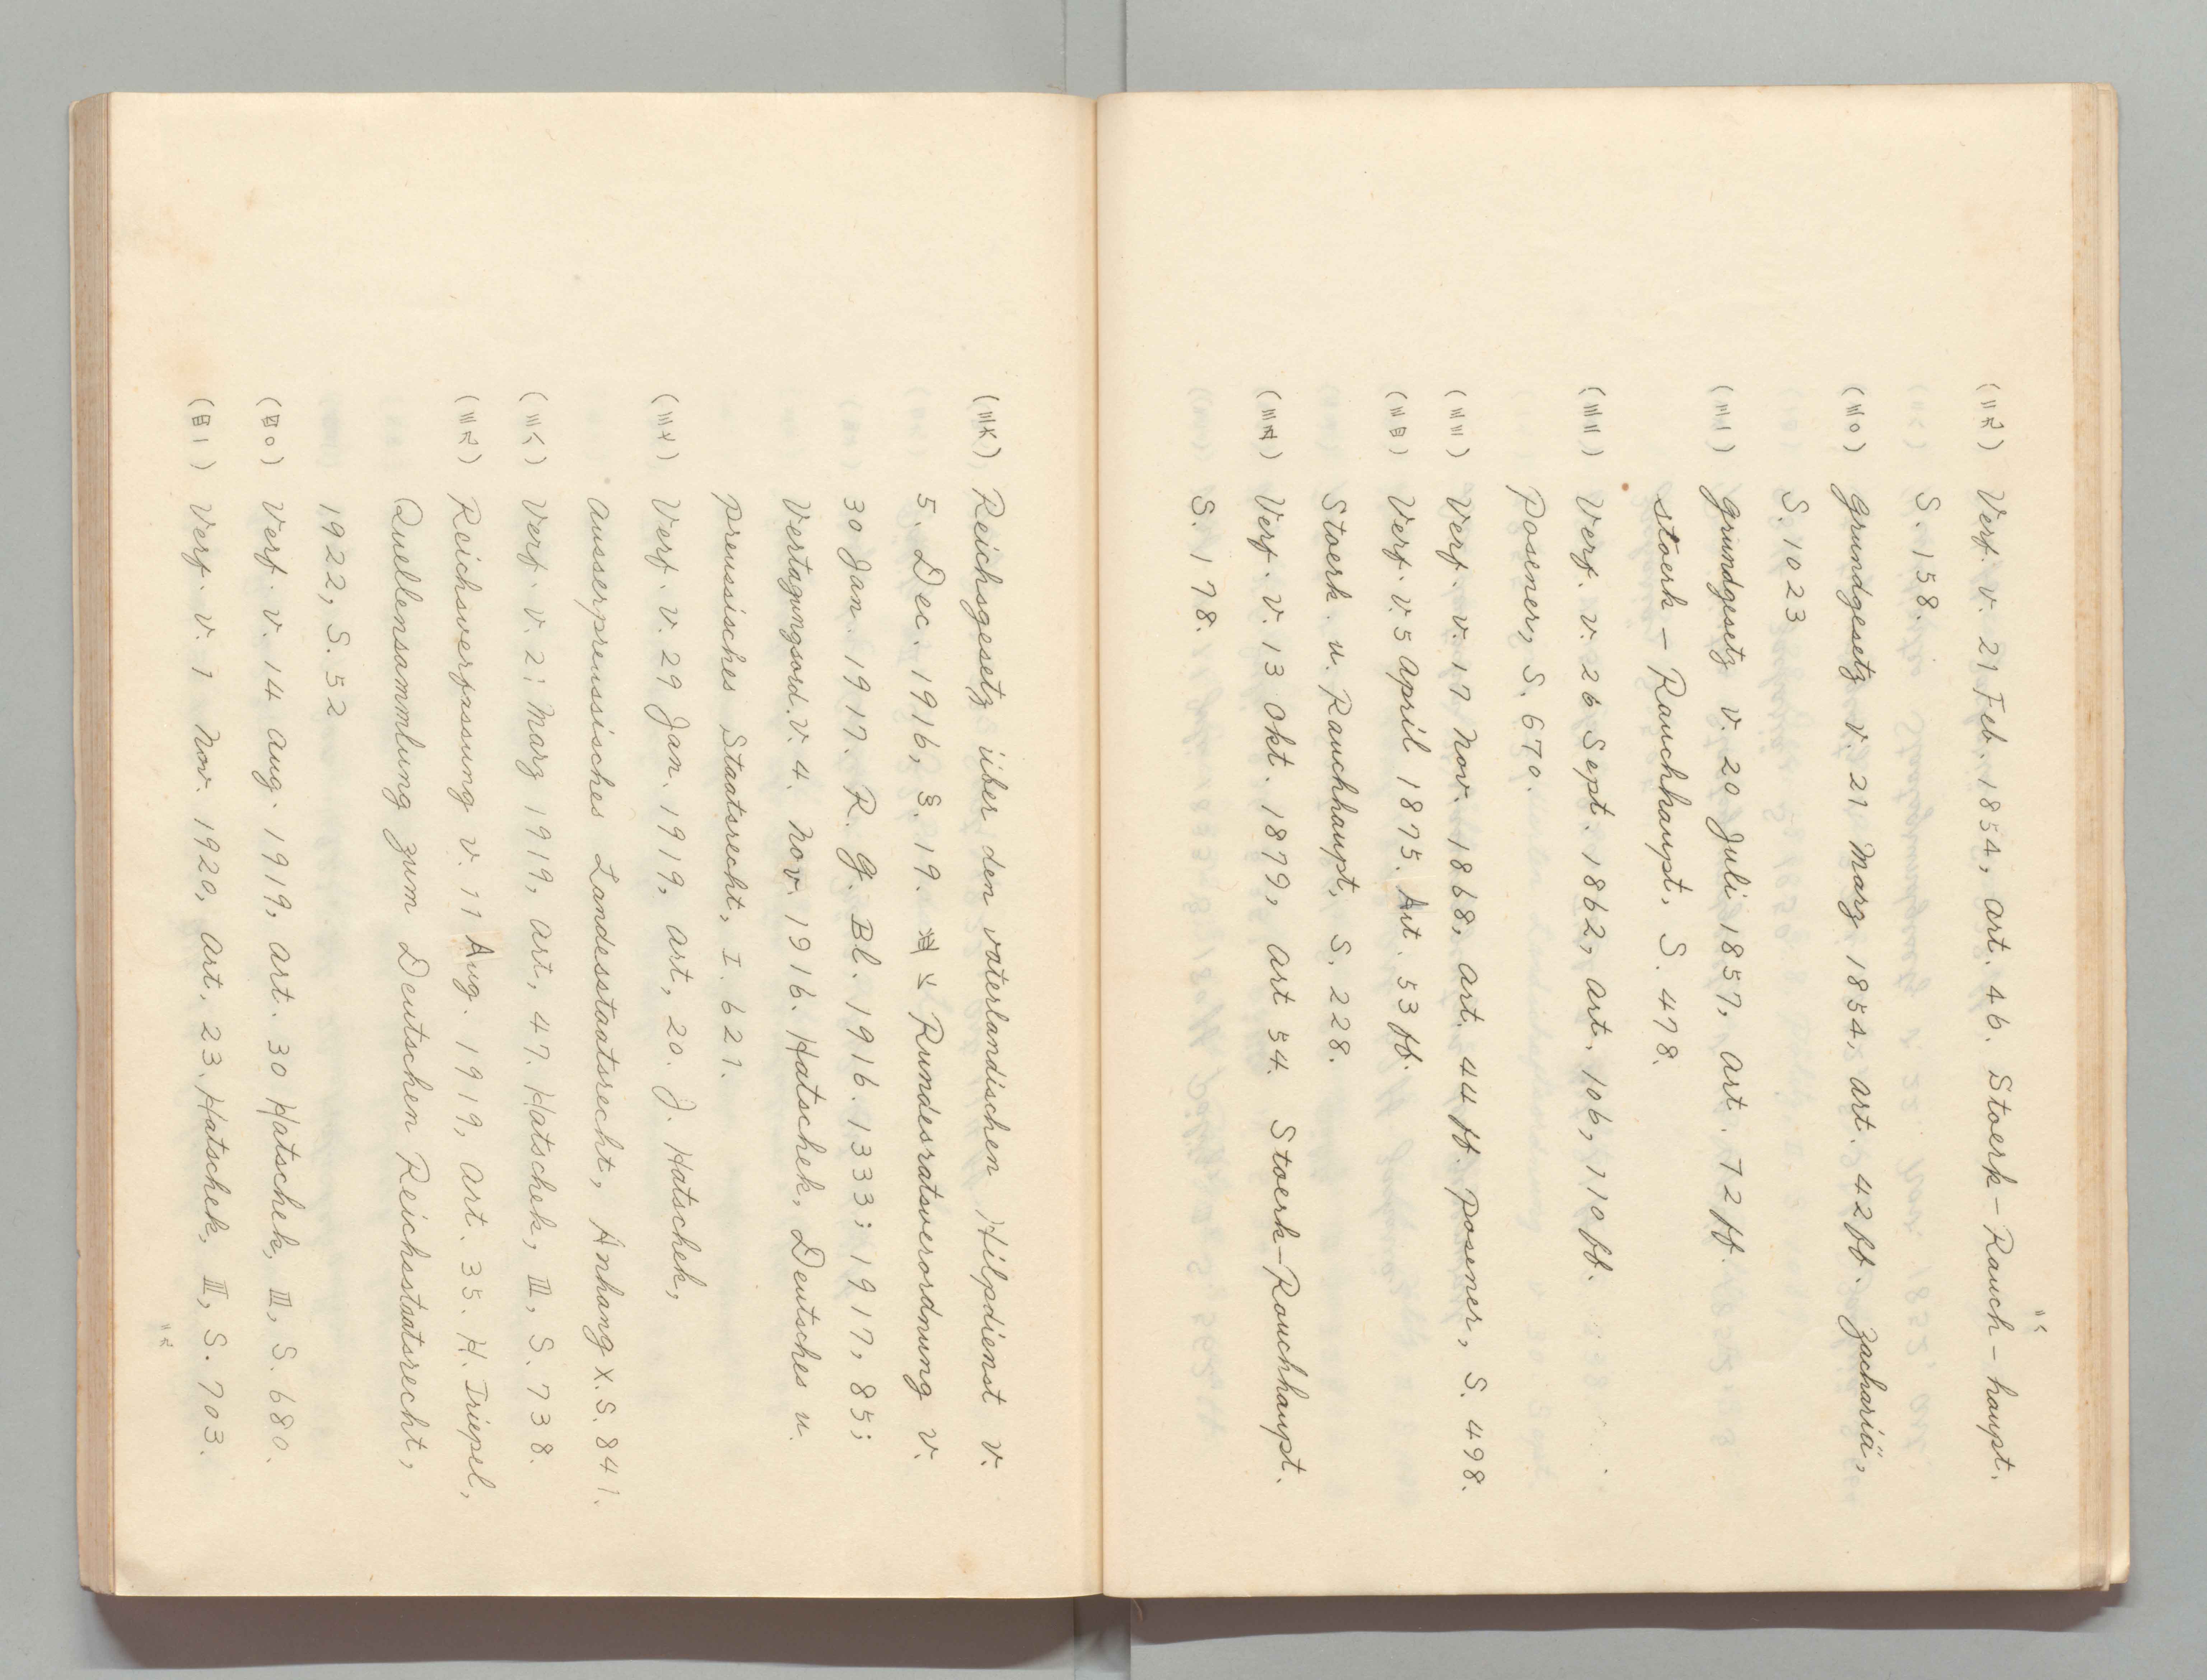 二八
(二九) Verf. v. 21 Feb. 1854, art. 46. Stoerk-Rauch-haupt.
S. 158.
(三〇) Grundgesetz v. 21 Marz 1854, art. 42 ff. Zachariä,
S. 1023
(三一) Grundgesetz v. 20 Juli 1857, art. 72 ff.
Stoerk-Rauchhaupt, S. 478.
(三二) Verf. v. 26 Sept. 1862, art. 106, 110 ff.
Posener, S. 670.
(三三) Verf. v. 17 Nov. 1868, art. 44 ff. Posener, S. 498.
(三四) Verf. v. 5 April 1875. Art. 53 ff.
Stoerk u. Rauchhaupt, S. 228.
(三五) Verf. v. 13 Okt. 1879, art 54. Stoerk-Rauchhaupt.
S. 178.
(三六) Reichsgesetz über den vaterlandischen Hilpdienst v.
5. Dec. 1916, S. 19. Rundesratsverordnung v.
30 Jan. 1917. R. G. Bl. 1916. 1333; 1917, 85;
Vertagungsord. v. 4. Nov. 1916. Hatschek, Deutsches u.
preussisches Staatsrecht, I. 621.
(三七) Verf. v. 29 Jan. 1919, art, 20. J. Hatschek,
Ausserpreussisches Landesstaatsrecht, Anhang X. S. 841.
(三八) Verf. v. 21 Marz 1919, art, 47. Hatschek, III, S. 738.
(三九) Reichsverfassung v. 11 Aug. 1919, art. 35. H. Triepel,
Quellensammlung zum Deutschen Reichsstaatsrecht,
1922, S. 52
(四〇) Verf. v. 14 aug. 1919, art. 30 Hatschek, III, S. 680.
(四一) Verf. v. 1 Nov. 1920, art. 23. Hatschek, III, S. 703.
二九